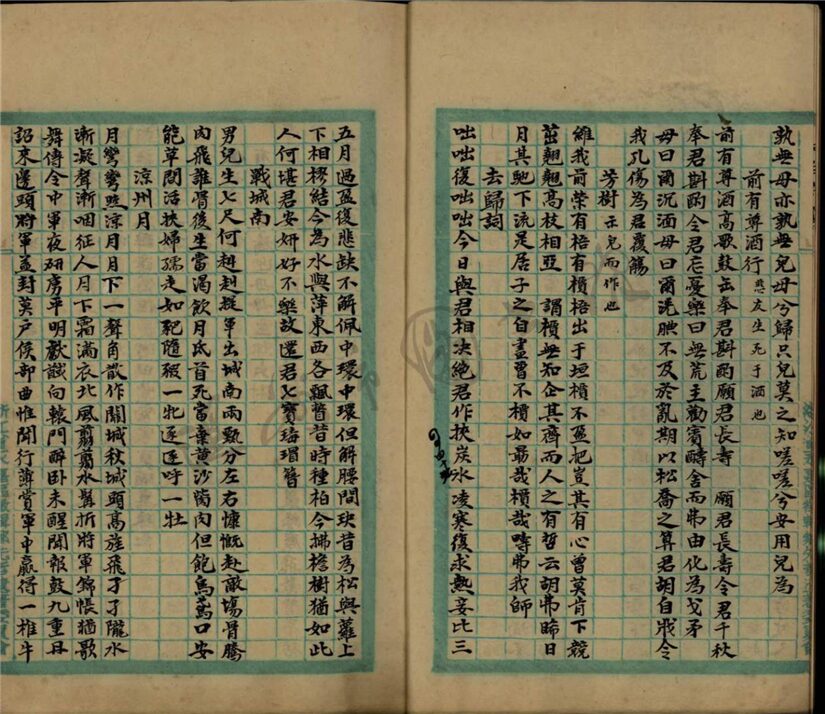 孰無母亦孰無兒母兮歸只兒莫之知嗟嗟兮安用兒為
前有尊酒行 悲友生死于酒也
前有尊酒高歌鼓缶奉君斟酌願君長壽 願君長壽令君千秋
奉君斟酌令君忘憂樂曰無荒主勸賓酬舍而弗由化為戈矛
毋曰爾沉湎毋曰爾洗腆不及於亂期以松喬之算君胡自戕令
我孔傷為君覆觴
芳樹 示兒而作也
維我前榮有梧有檟梧出于垣檟不盈把豈其有心曾莫肯下競
茁翹翹高枝相亞 謂檟無知企其齊而人之有哲云胡弗睎日
月其馳下流是居子之自畫曾不檟如最哉檟哉疇弗我師
去歸詞
咄咄復咄咄今日與君相決絕君作挾炭水凌寒復求熱妾比三
五月過盈復悲缺不解佩中環但解腰間玦昔為松與蘿上
下相樛結今為水與萍東西各飄瞥昔時種柏今拂檐樹猶如此
人何堪君安妍好不樂故還君七寶瑇瑁簪
戰城南
男兒生七尺何趄赳凝軍出城南雨甄分左右慷慨赴敵場骨騰
肉飛誰肯後生當渴飲月氏首死當棄黃沙菌肉但飽烏鳶口安
能草間活扶婦孺走如豝隨豭一牝逐逐呼一牡
涼州月
月彎彎照涼月月下一聲角散作關城秋城頭高旌飛孑孑隴水
漸凝聲漸咽征人月下霜滿衣北風翦翦水鬟折將軍錦帳猶歌
舞傳令中軍夜斫虜平明獻馘向轅門醉卧未醒聞報鼓九重丹
詔來邊頭將軍蓋封萬户侯部曲惟聞行薄賞軍中贏得一椎牛